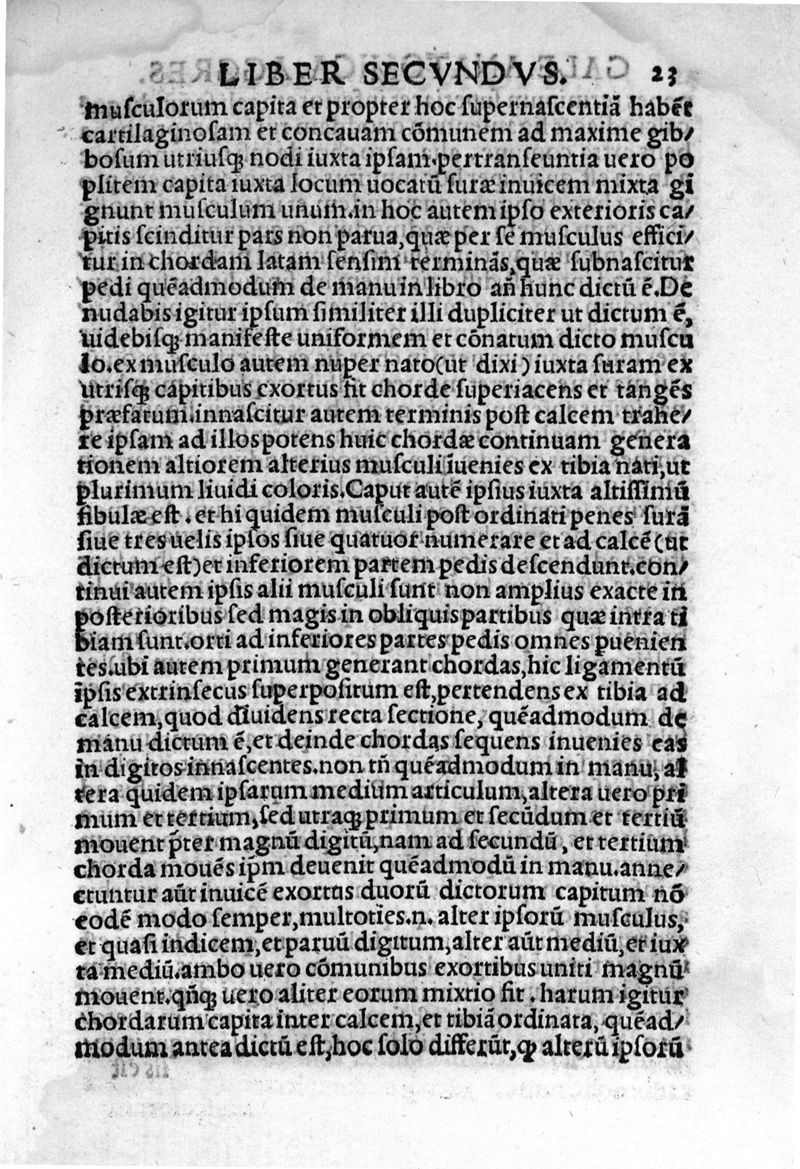 LIBER SECVNDVS. 23
muſculorum capita et propter hoc ſupernaſcentiã habẽt
cartilaginoſam et concauam cõmunem ad maxime gib/
boſum utriuſq; nodi iuxta ipſam.pertranſeuntia uero po
plitem capita iuxta locum uocatũ ſuræ inuicem mixta gi
gnunt muſculum unum.in hoc autem ipſo exterioris ca/
pitis ſcinditur pars non parua,quæ per ſe muſculus effici/
tur in chordam latam ſenſim terminãs,quæ ſubnaſcitur
pedi quẽadmodum de manu in libro añ hunc dictũ ẽ.De
nudabis igitur ipſum ſimiliter illi dupliciter ut dictum ẽ,
uidebiſq; manifeſte uniformem et cõnatum dicto muſcu
lo.ex muſculo autem nuper nato(ut dixi) iuxta ſuram ex
utriſq; capitibus exortus fit chorde ſuperiacens et tangẽs
præfatum.innaſcitur autem terminis poſt calcem trahe/
re ipſam ad illos potens huic chordæ continuam genera
tionem altiorem alterius muſculi ĩuenies ex tibia nati,ut
plurimum liuidi coloris.Caput autẽ ipſius iuxta altiſſimũ
fibulæ eſt.et hi quidem muſculi poſt ordinati penes ſurã
ſiue tres uelis ipſos ſiue quatuor numerare et ad calcẽ(ut
dictum eſt)et inferiorem partem pedis deſcendunt.con/
tinui autem ipſis alii muſculi ſunt non amplius exacte in
poſterioribus ſed magis in obliquis partibus quæ intra ti
biam ſunt.orti ad inferiores partes pedis omnes pueniẽn
tes.ubi autem primum generant chordas,hic ligamentũ
ĩpſis extrinſecus ſuperpoſitum eſt,pertendens ex tibia ad
calcem,quod diuidens recta ſectione, quẽadmodum de
manu dictum ẽ,et deinde chordas ſequens inuenies eas
in digitos innaſcentes.non tñ quẽadmodum in manu, al
tera quidem ipſarum medium articulum,altera uero pri
mum et tertium,ſed utraq; primum et ſecũdum et tertiũ
mouent p̃ter magnũ digitũ,nam ad ſecundũ, et tertium
chorda mouẽs ip̃m deuenit quẽadmodũ in manu.anne/
ctuntur aũt inuicẽ exortus duorũ dictorum capitum nõ
eodẽ modo ſemper,multoties.n. alter ipſorũ muſculus,
et quaſi indicem,et paruũ digitum,alter aũt mediũ,et iux
ta mediũ.ambo uero cõmunibus exortibus uniti magnũ
mouent.qñq; uero aliter eorum mixtio fit.harum igitur
chordarum capita inter calcem,et tibiã ordinata, quẽad/
modum antea dictũ eſt,hoc ſolo differũt,ꝙ alterũ ĩpſorũ